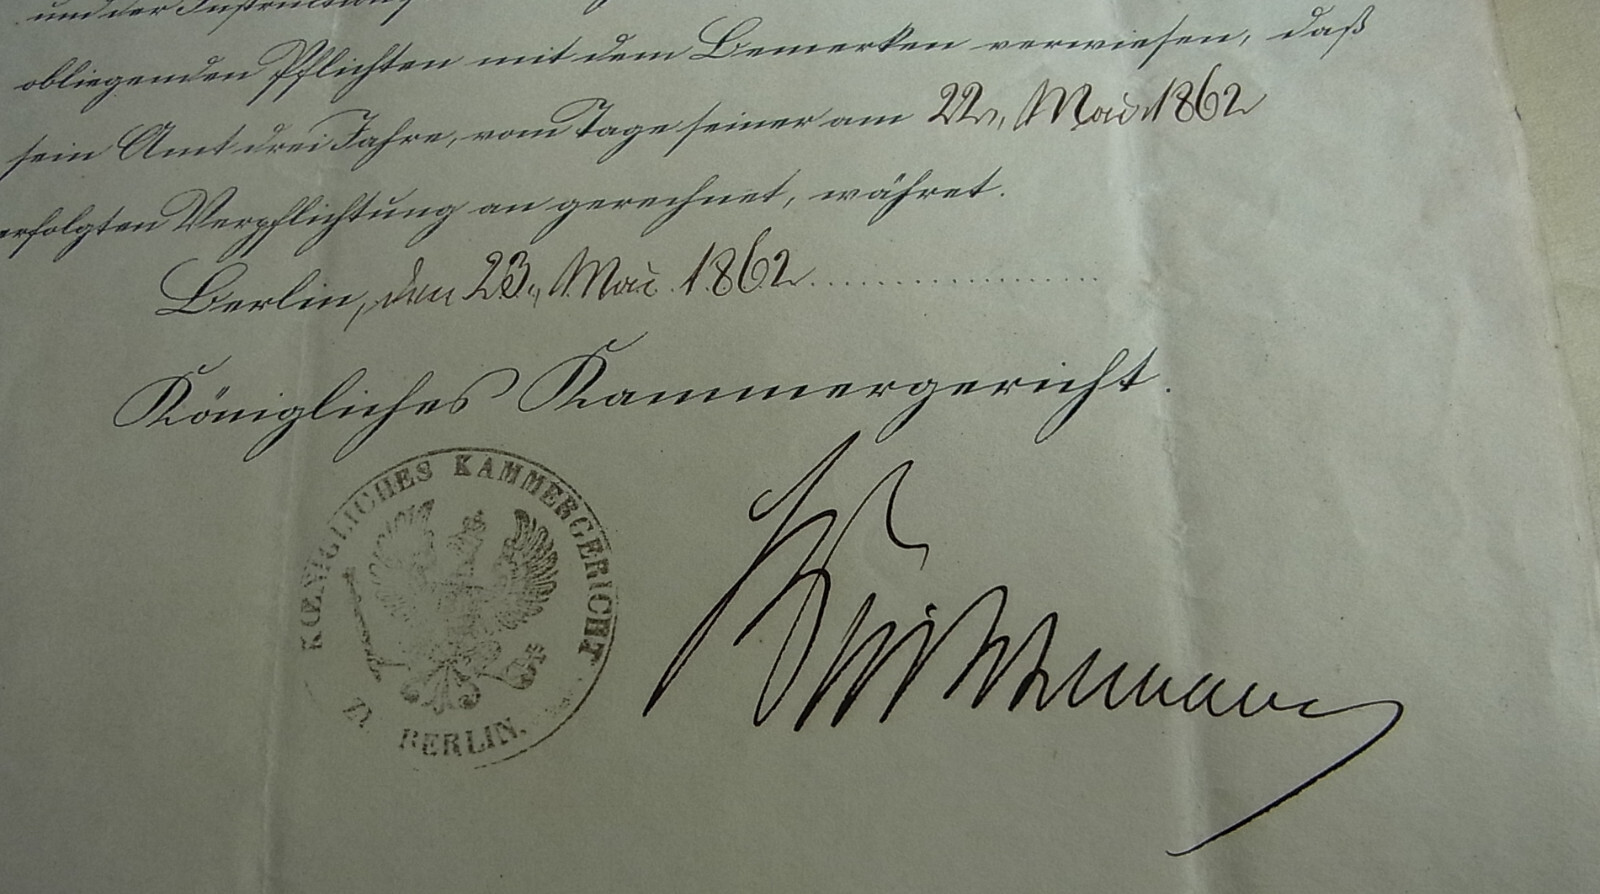 und der Instruction
obliegenden Pflichten mit dem Bemerken verwiesen, daß
sein Amt drei Jahre, vom Tage seiner am 22. Mai 1862
erfolgten Verpflichtung an gerechnet, währet.
Berlin, den 23. Mai 1862
Königliches Kammergericht.
KŒNIGLICHES KAMMERGERICHT
Z. BERLIN.